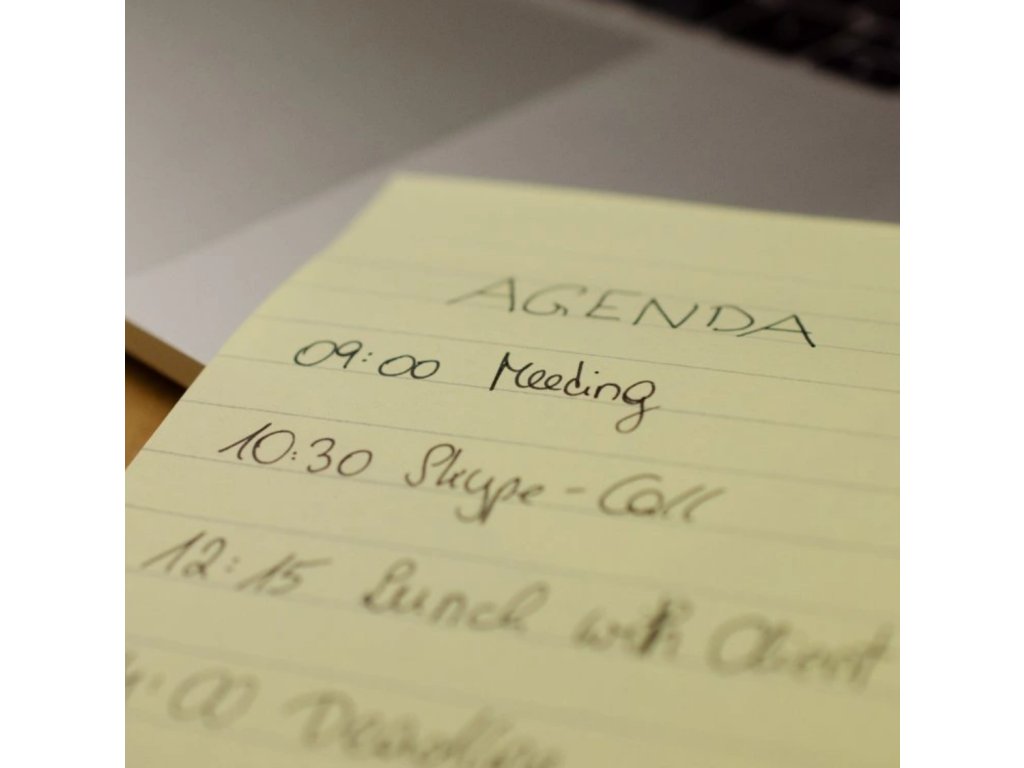 AGENDA
09:00 Meeding
10:30 Skype-Call
12:15 Lunch with Client
:00 Deadline